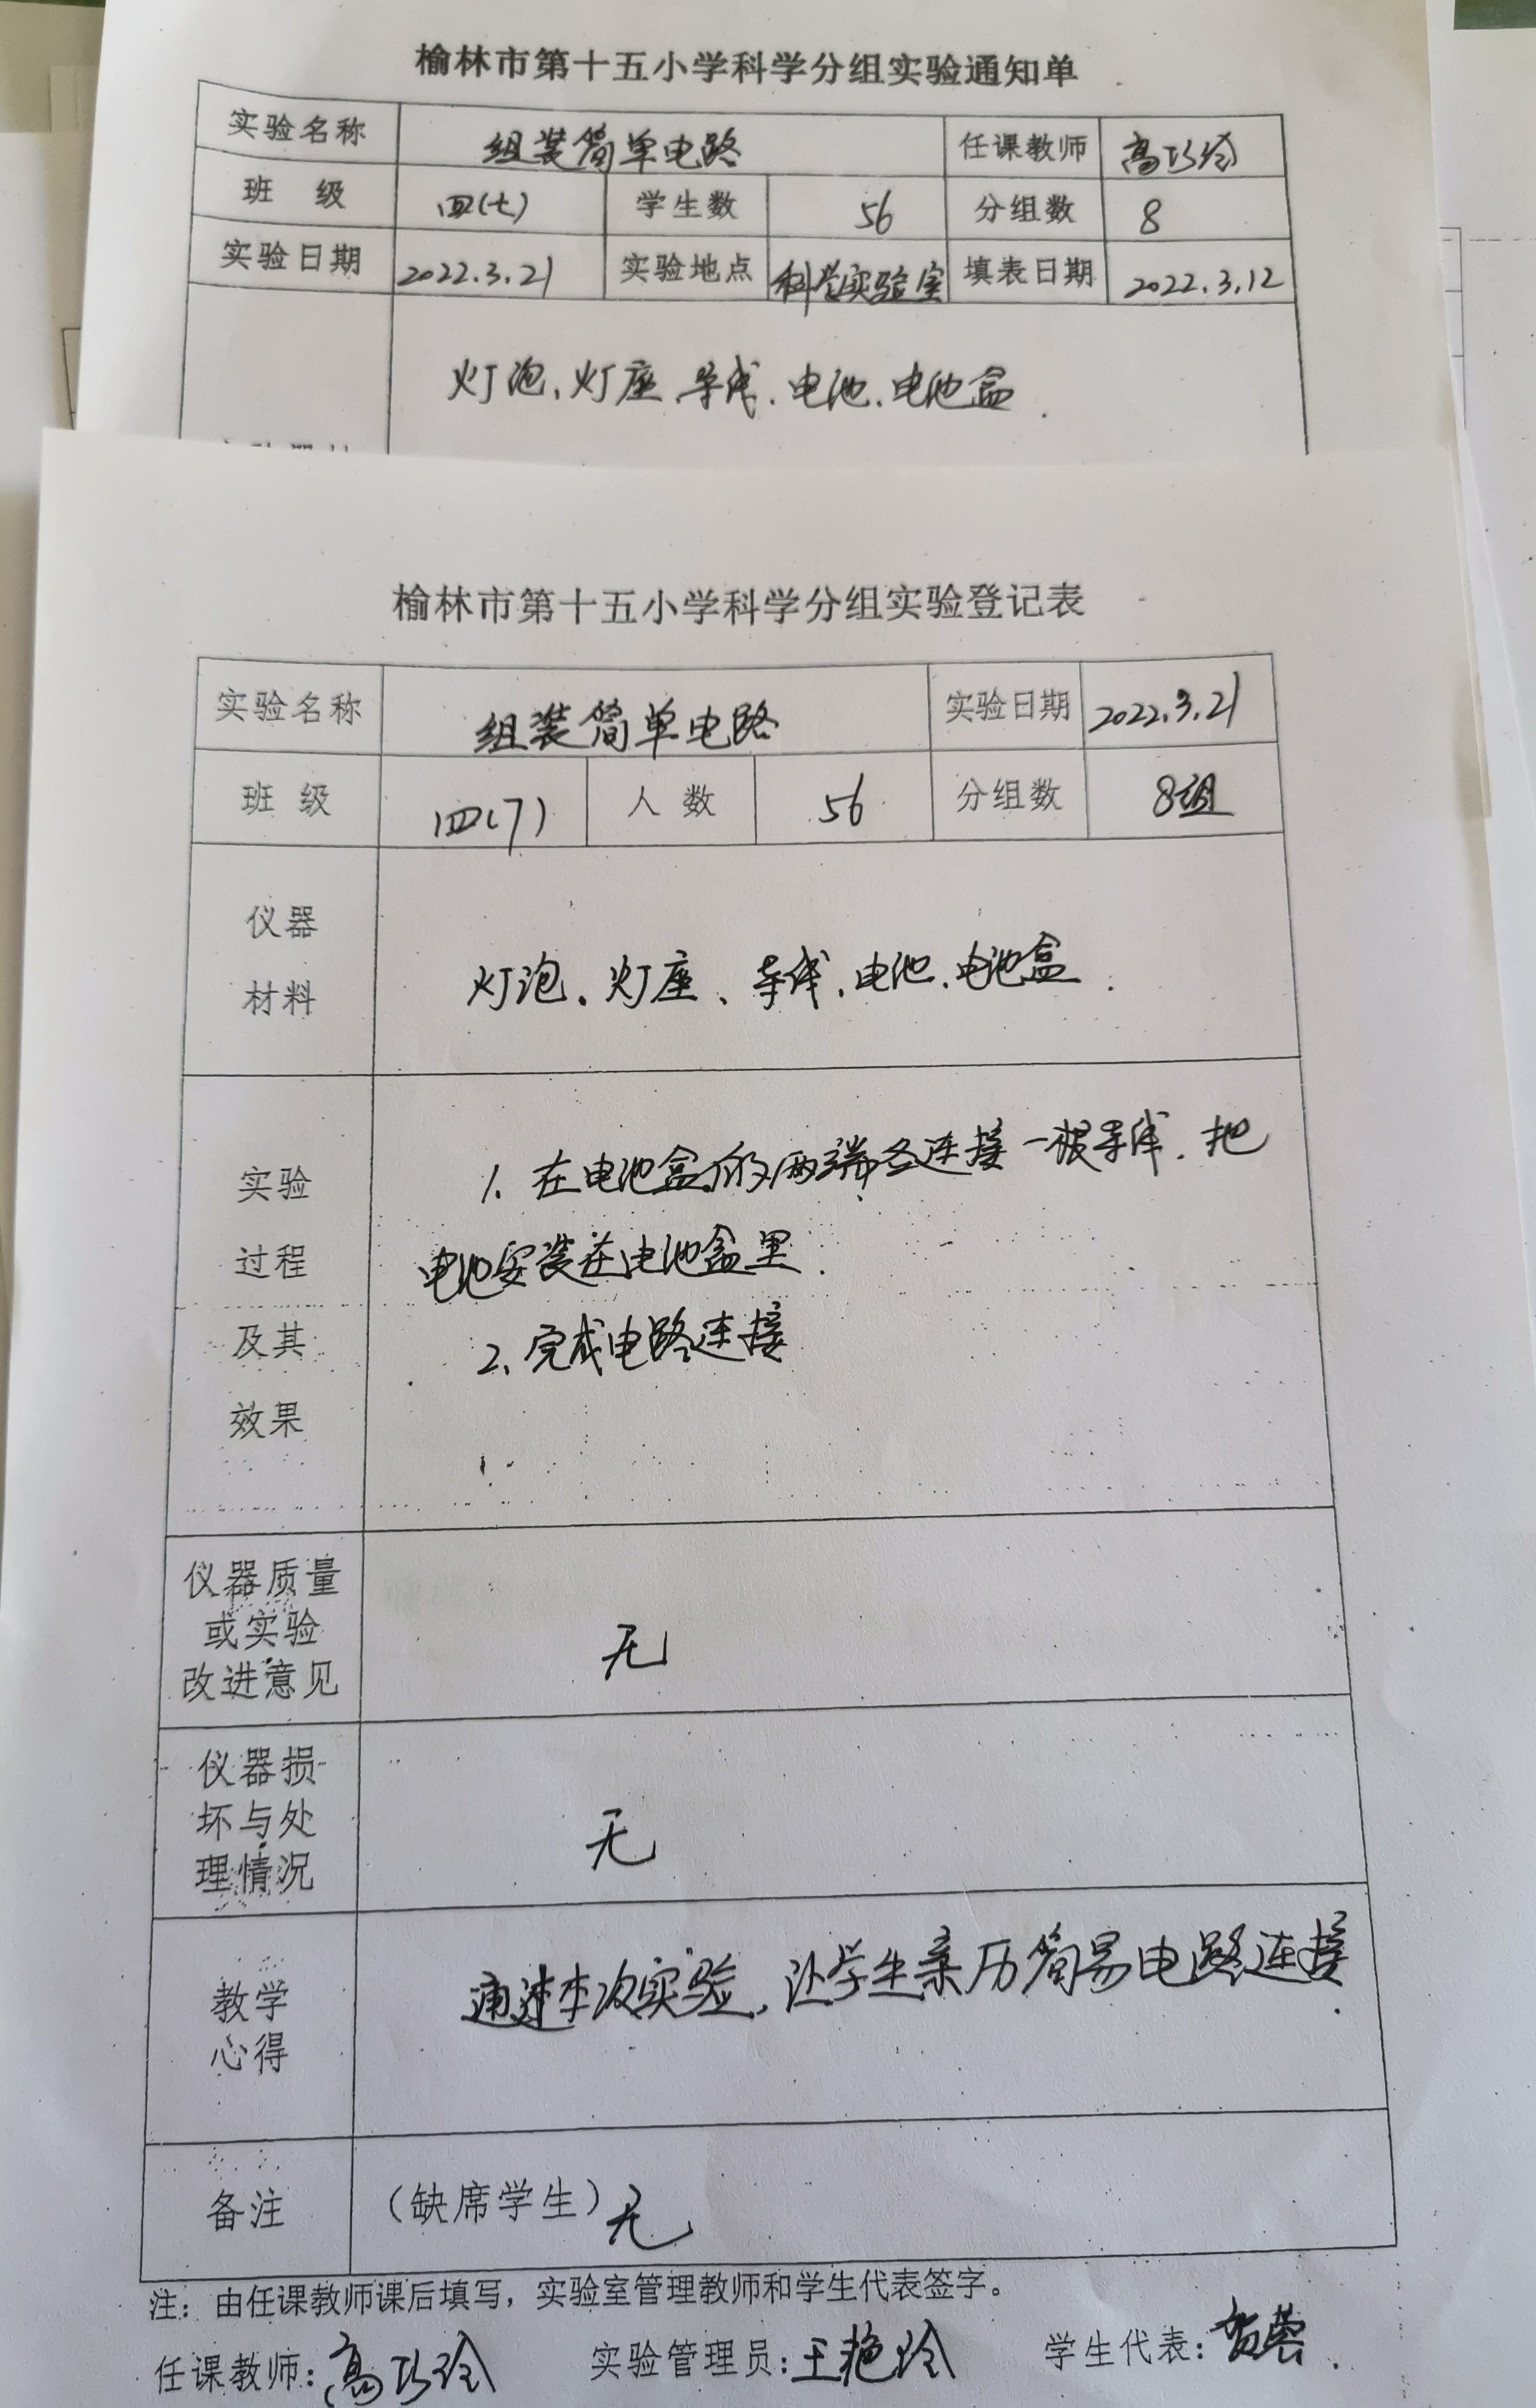 榆林市第十五小学科学分组实验通知单
实验名称 组装简单电路 任课教师 高巧玲
班 级 四(七) 学生数 56 分组数 8
实验日期 2022.3.21 实验地点 科学实验室 填表日期 2022.3.12
灯泡、灯座、导线、电池、电池盒.
榆林市第十五小学科学分组实验登记表
实验名称 组装简单电路 实验日期 2022.3.21
班 级 四(7) 人 数 56 分组数 8组
仪器
材料
灯泡、灯座、导线、电池、电池盒.
实验
过程
及其
效果
1. 在电池盒的两端各连接一根导线.把
电池安装在电池盒里.
2、完成电路连接
仪器质量
或实验
改进意见
无
仪器损
坏与处
理情况
无
教学
心得
通过本次实验,让学生亲历简易电路连接.
备注 (缺席学生)无
注:由任课教师课后填写,实验室管理教师和学生代表签字。
任课教师:高巧玲 实验管理员:王艳玲 学生代表: